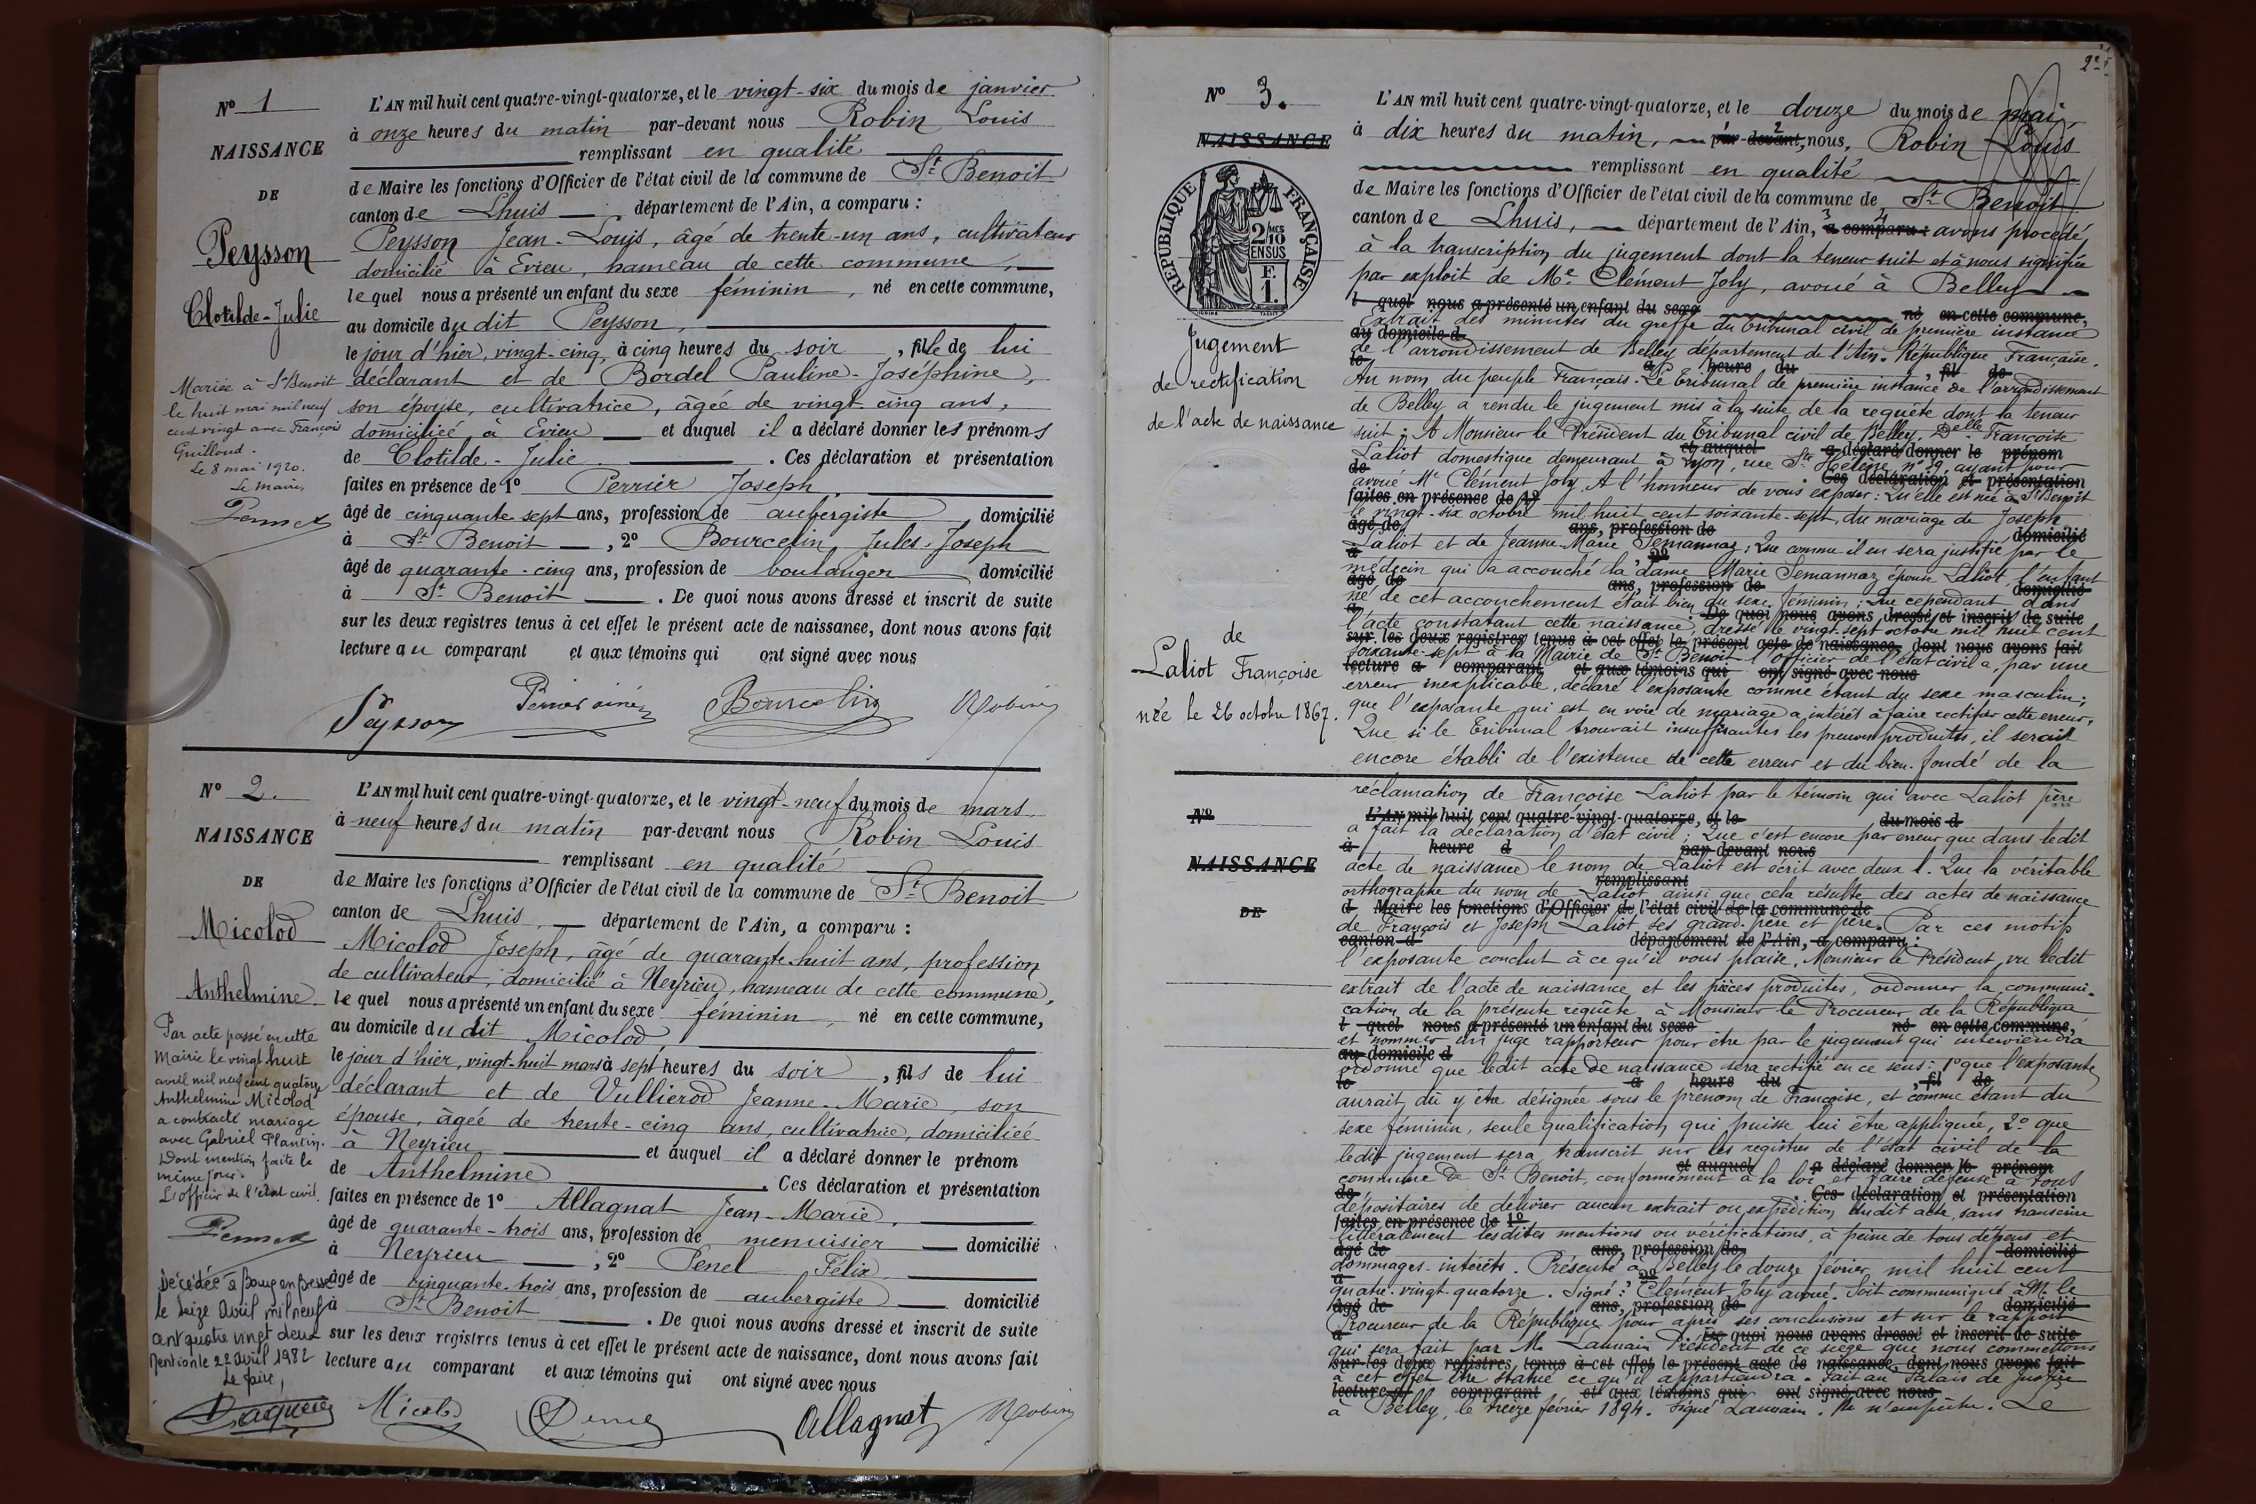 N° 1
NAISSANCE
DE
Peysson
Clotilde-Julie
Mariée à St Benoit
le huit mai mil neuf
cent vingt avec François
Guilloud.
Le 8 mai 1920.
Le maire,
L'AN mil huit cent quatre-vingt-quatorze, et le vingt-six du mois de janvier
à onze heures du matin par-devant nous Robin Louis
remplissant en qualité
de Maire les fonctions d'Officier de l'état civil de la commune de St Benoit
canton de Lhuis département de l'Ain, a comparu :
Peysson Jean-Louis, âgé de trente-un ans, cultivateur
domicilié à Evieu, hameau de cette commune,
lequel nous a présenté un enfant du sexe féminin, né en cette commune,
au domicile du dit Peysson,
le jour d'hier, vingt-cinq, à cinq heures du soir, fille de lui
déclarant et de Bordel Pauline-Joséphine,
son épouse, cultivatrice, âgée de vingt-cinq ans,
domiciliée à Evieu et auquel il a déclaré donner les prénoms
de Clotilde-Julie. Ces déclaration et présentation
faites en présence de 1° Perrier Joseph
âgé de cinquante-sept ans, profession de aubergiste domicilié
à St Benoit, 2° Bourcelin Jules-Joseph
âgé de quarante-cinq ans, profession de boulanger domicilié
à St Benoit. De quoi nous avons dressé et inscrit de suite
sur les deux registres tenus à cet effet le présent acte de naissance, dont nous avons fait
lecture au comparant et aux témoins qui ont signé avec nous
Peysson Perrier ainé Bourcelin Robin
N° 2.
NAISSANCE
DE
Micolod
Anthelmine
Par acte passé en cette
Mairie le vingt huit
avril mil neuf cent quatorze
Anthelmine Micolod
a contracté mariage
avec Gabriel Plantin.
Dont mention faite le
même jour.
L'officier de l'état civil.
Décédée à Bourg en Bresse
le seize Avril mil neuf
cent quatre vingt deux
Mention le 22 avril 1982
Le Maire,
L'AN mil huit cent quatre-vingt-quatorze, et le vingt-neuf du mois de mars
à neuf heures du matin par-devant nous Robin Louis
remplissant en qualité
de Maire les fonctions d'Officier de l'état civil de la commune de St Benoit
canton de Lhuis département de l'Ain, a comparu :
Micolod Joseph, âgé de quarante-huit ans, profession
de cultivateur, domicilié à Neyrieu, hameau de cette commune,
lequel nous a présenté un enfant du sexe féminin, né en cette commune,
au domicile du dit Micolod
le jour d'hier, vingt-huit mars à sept heures du soir, fils de lui
déclarant et de Vullierod Jeanne-Marie, son
épouse, âgée de trente-cinq ans, cultivatrice, domiciliée
à Neyrieu et auquel il a déclaré donner le prénom
de Anthelmine. Ces déclaration et présentation
faites en présence de 1° Allagnat Jean-Marie,
âgé de quarante-trois ans, profession de menuisier domicilié
à Neyrieu, 2° Penel Félix
âgé de cinquante-trois ans, profession de aubergiste domicilié
à St Benoit. De quoi nous avons dressé et inscrit de suite
sur les deux registres tenus à cet effet le présent acte de naissance, dont nous avons fait
lecture au comparant et aux témoins qui ont signé avec nous
Allagnat Robin
N° 3.
NAISSANCE
REPUBLIQUE FRANÇAISE
2 MES 10 EN SUS
F. 1.
Jugement
de rectification
de l'acte de naissance
de
Laliot Françoise
née le 26 octobre 1867.
L'AN mil huit cent quatre-vingt-quatorze, et le douze du mois de mai,
à dix heures du matin, par-devant, nous, Robin Louis
remplissant en qualité
de Maire les fonctions d'Officier de l'état civil de la commune de St Benoit
canton de Lhuis, département de l'Ain, a comparu : avons procédé
à la transcription du jugement dont la teneur suit et à nous signifiée
par exploit de Me Clément Joly, avoué à Belley
l quel nous a présenté un enfant du sexe né en cette commune,
Extrait des minutes du greffe du Tribunal civil de première instance
au domicile d
de l'arrondissement de Belley département de l'Ain. République Française.
le à heure du, fil de
Au nom du peuple Français. Le Tribunal de première instance de l'arrondissement
de Belley a rendu le jugement mis à la suite de la requête dont la teneur
suit : A Monsieur le Président du Tribunal civil de Belley, Delle Françoise
et auquel a déclaré donner le prénom
Laliot domestique demeurant à Lyon, rue Ste Hélène, n° 29, ayant pour
de Ces déclaration et présentation
avoué Me Clément Joly. A l'honneur de vous exposer : Qu'elle est née à St Benoit
faites en présence de 1°
le vingt-six octobre mil huit cent soixante-sept, du mariage de Joseph
âgé de ans, profession de domicilié
Laliot et de Jeanne-Marie Semannaz ; Que comme il en sera justifié par le
à 2°
médecin qui a accouché la dame Marie Semannaz épouse Laliot, l'enfant
âgé de ans, profession de domicilié
né de cet accouchement était bien du sexe féminin ; Que cependant dans
à De quoi nous avons dressé et inscrit de suite
l'acte constatant cette naissance, dressé le vingt-sept octobre mil huit cent
sur les deux registres tenus à cet effet le présent acte de naissance, dont nous avons fait
soixante-sept à la Mairie de St Benoit l'officier de l'état civil a, par une
lecture a comparant et aux témoins qui ont signé avec nous
erreur inexplicable, déclaré l'exposante comme étant du sexe masculin ;
que l'exposante qui est en voie de mariage a intérêt à faire rectifier cette erreur ;
Que si le Tribunal trouvait insuffisantes les preuves produites, il serait
encore établi de l'existence de cette erreur et du bien-fondé de la
réclamation de Françoise Laliot par le témoin qui avec Laliot père
N°
NAISSANCE
DE
L'AN mil huit cent quatre-vingt-quatorze, et le du mois d
a fait la déclaration d'état civil ; Que c'est encore par erreur que dans ledit
à heure d par-devant nous
acte de naissance le nom de Laliot est écrit avec deux l. Que la véritable
remplissant
orthographe du nom de Laliot ainsi que cela résulte des actes de naissance
d Maire les fonctions d'Officier de l'état civil de la commune de
de François et Joseph Laliot ses grand-père et père. Par ces motifs
canton d département de l'Ain, a comparu :
l'exposante conclut à ce qu'il vous plaise, Monsieur le Président, vu ledit
extrait de l'acte de naissance et les pièces produites, ordonner la communi-
cation de la présente requête à Monsieur le Procureur de la République
l quel nous a présenté un enfant du sexe né en cette commune,
et nommer un juge rapporteur pour être par le jugement qui interviendra
au domicile d
ordonné que ledit acte de naissance sera rectifié en ce sens : 1° que l'exposante
le à heure du, fil de
aurait dû y être désignée sous le prénom de Françoise, et comme étant du
sexe féminin, seule qualification qui puisse lui être appliquée, 2° que
ledit jugement sera transcrit sur les registres de l'état civil de la
et auquel a déclaré donner le prénom
commune de St Benoit, conformément à la loi et faire défense à tous
de Ces déclaration et présentation
dépositaires de délivrer aucun extrait ou expédition dudit acte, sans transcrire
faites en présence de 1°
littéralement lesdites mentions ou vérifications, à peine de tous dépens et
âgé de ans, profession de domicilié
dommages-intérêts. Présenté à Belley le douze février, mil huit cent
à 2°
quatre-vingt-quatorze. Signé : Clément Joly avoué. Soit communiqué à M. le
âgé de ans, profession de domicilié
Procureur de la République pour après ses conclusions et sur le rapport
à De quoi nous avons dressé et inscrit de suite
qui sera fait par M. Lauvain Président de ce siège que nous commettons
sur les deux registres tenus à cet effet le présent acte de naissance, dont nous avons fait
à cet effet être statué ce qu'il appartiendra. Fait au Palais de Justice
lecture a comparant et aux témoins qui ont signé avec nous
à Belley, le treize février 1894. Signé Lauvain. Je n'empêche. Le